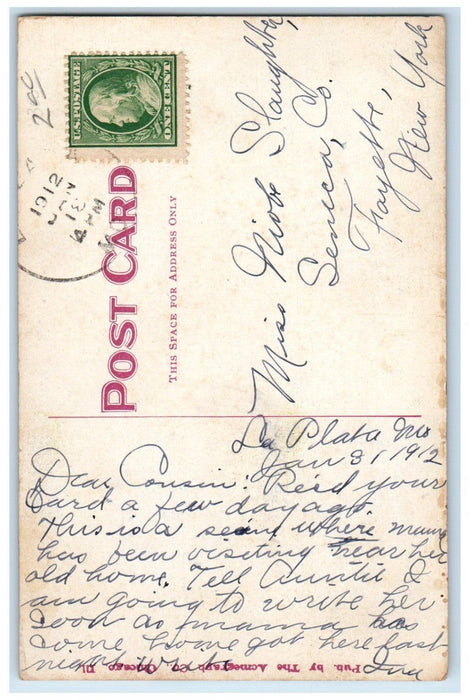 2c
U.S. POSTAGE
ONE CENT
1912
JAN
4 PM
POST CARD
THIS SPACE FOR ADDRESS ONLY
Miss Niobe Slaughter,
Seneca, Co.
Fayette,
New York
La Plata Mo
Jan 31 1912
Dear Cousin: Rec'd your
card a few day ago.
This is a seen where mama
has been visiting near her
old home. Tell Auntie I
am going to write her
soon as mama has
come home got here fast
Pub. by The Acmegraph Co. Chicago Ill.